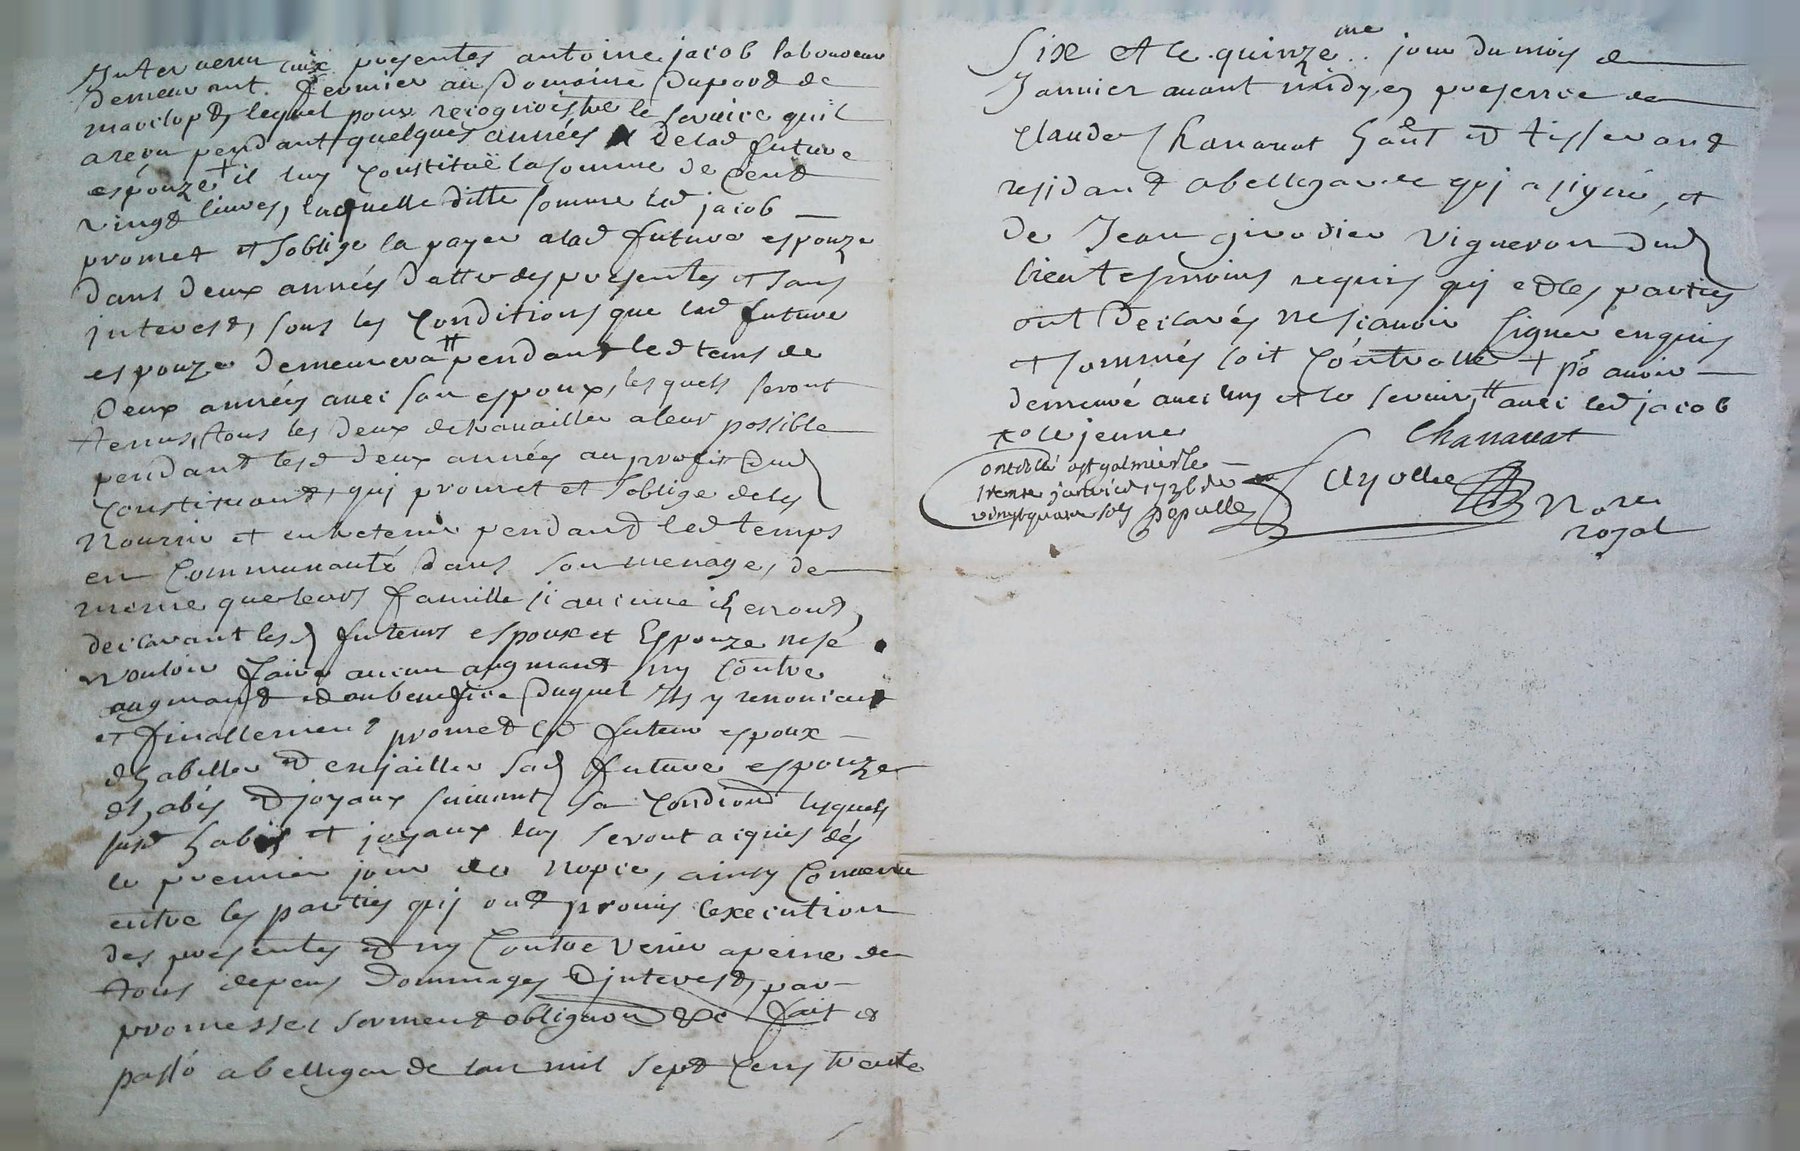 Intervenu aux presentes antoine jacob laboureur
demeurant fermier au Domaine Dupord de
lequel pour recognoistre le service quil
a reçu pendant quelques années de lad future
espouze + il luy constitué la somme de Cent
vingt livres, laquelle ditte somme led jacob
promet et soblige la payer a lad future espouze
dans deux années datte des presentes et sans
interest, sous les Conditions que lad future
espouze demeurera # pendant led tems de
deux années avec son espoux, les quels seront
tenus tous les deux de travailler a leur possible
pendant lesd deux années au proffit dud
Constituant, qui promet et soblige de les
nourrir et entretenir pendant led temps
en Communauté dans son menage, de
meme que leurs famille si aucune ils en ont,
declarant lesd futeurs espoux et Espouze
vouloir faire aucun augmant ny Contre
augmant et au benefice duquel Ils y renoncent
et finallement promet led futeur espoux
dhabiller et enjailler sad future espouze
dhabis et joyaux suivant sa Condiond lesquels
susd habis et joyaux luy seront acquis dés
le premier jour de nopce, ainsy Convenu
entre les parties qui ont promis lexecution
des presentes et ny Contrevenir a peine de
tous depens dommages et interest, par
promesses serment obligaon &c fait et
passé a bellegarde lan mil sept Cens trente
Six et le quinze me jour du mois de
Janvier avant midy en presence de
Claude Chanavat et tisserand
residant a bellegarde qui a signé, et
de Jean girodier vigneron dud
lieu tesmoins requis qui et les parties
ont declarés ne sçavoir signer enquis
et sommés soit Controllé + po avoir
demeuré avec luy et le servir, # avec led jacob
le jeune
Chanavat
Controllé a st galmier le
trente janvier 1736
vingt quatre sols
Fayolle
Nore
royal